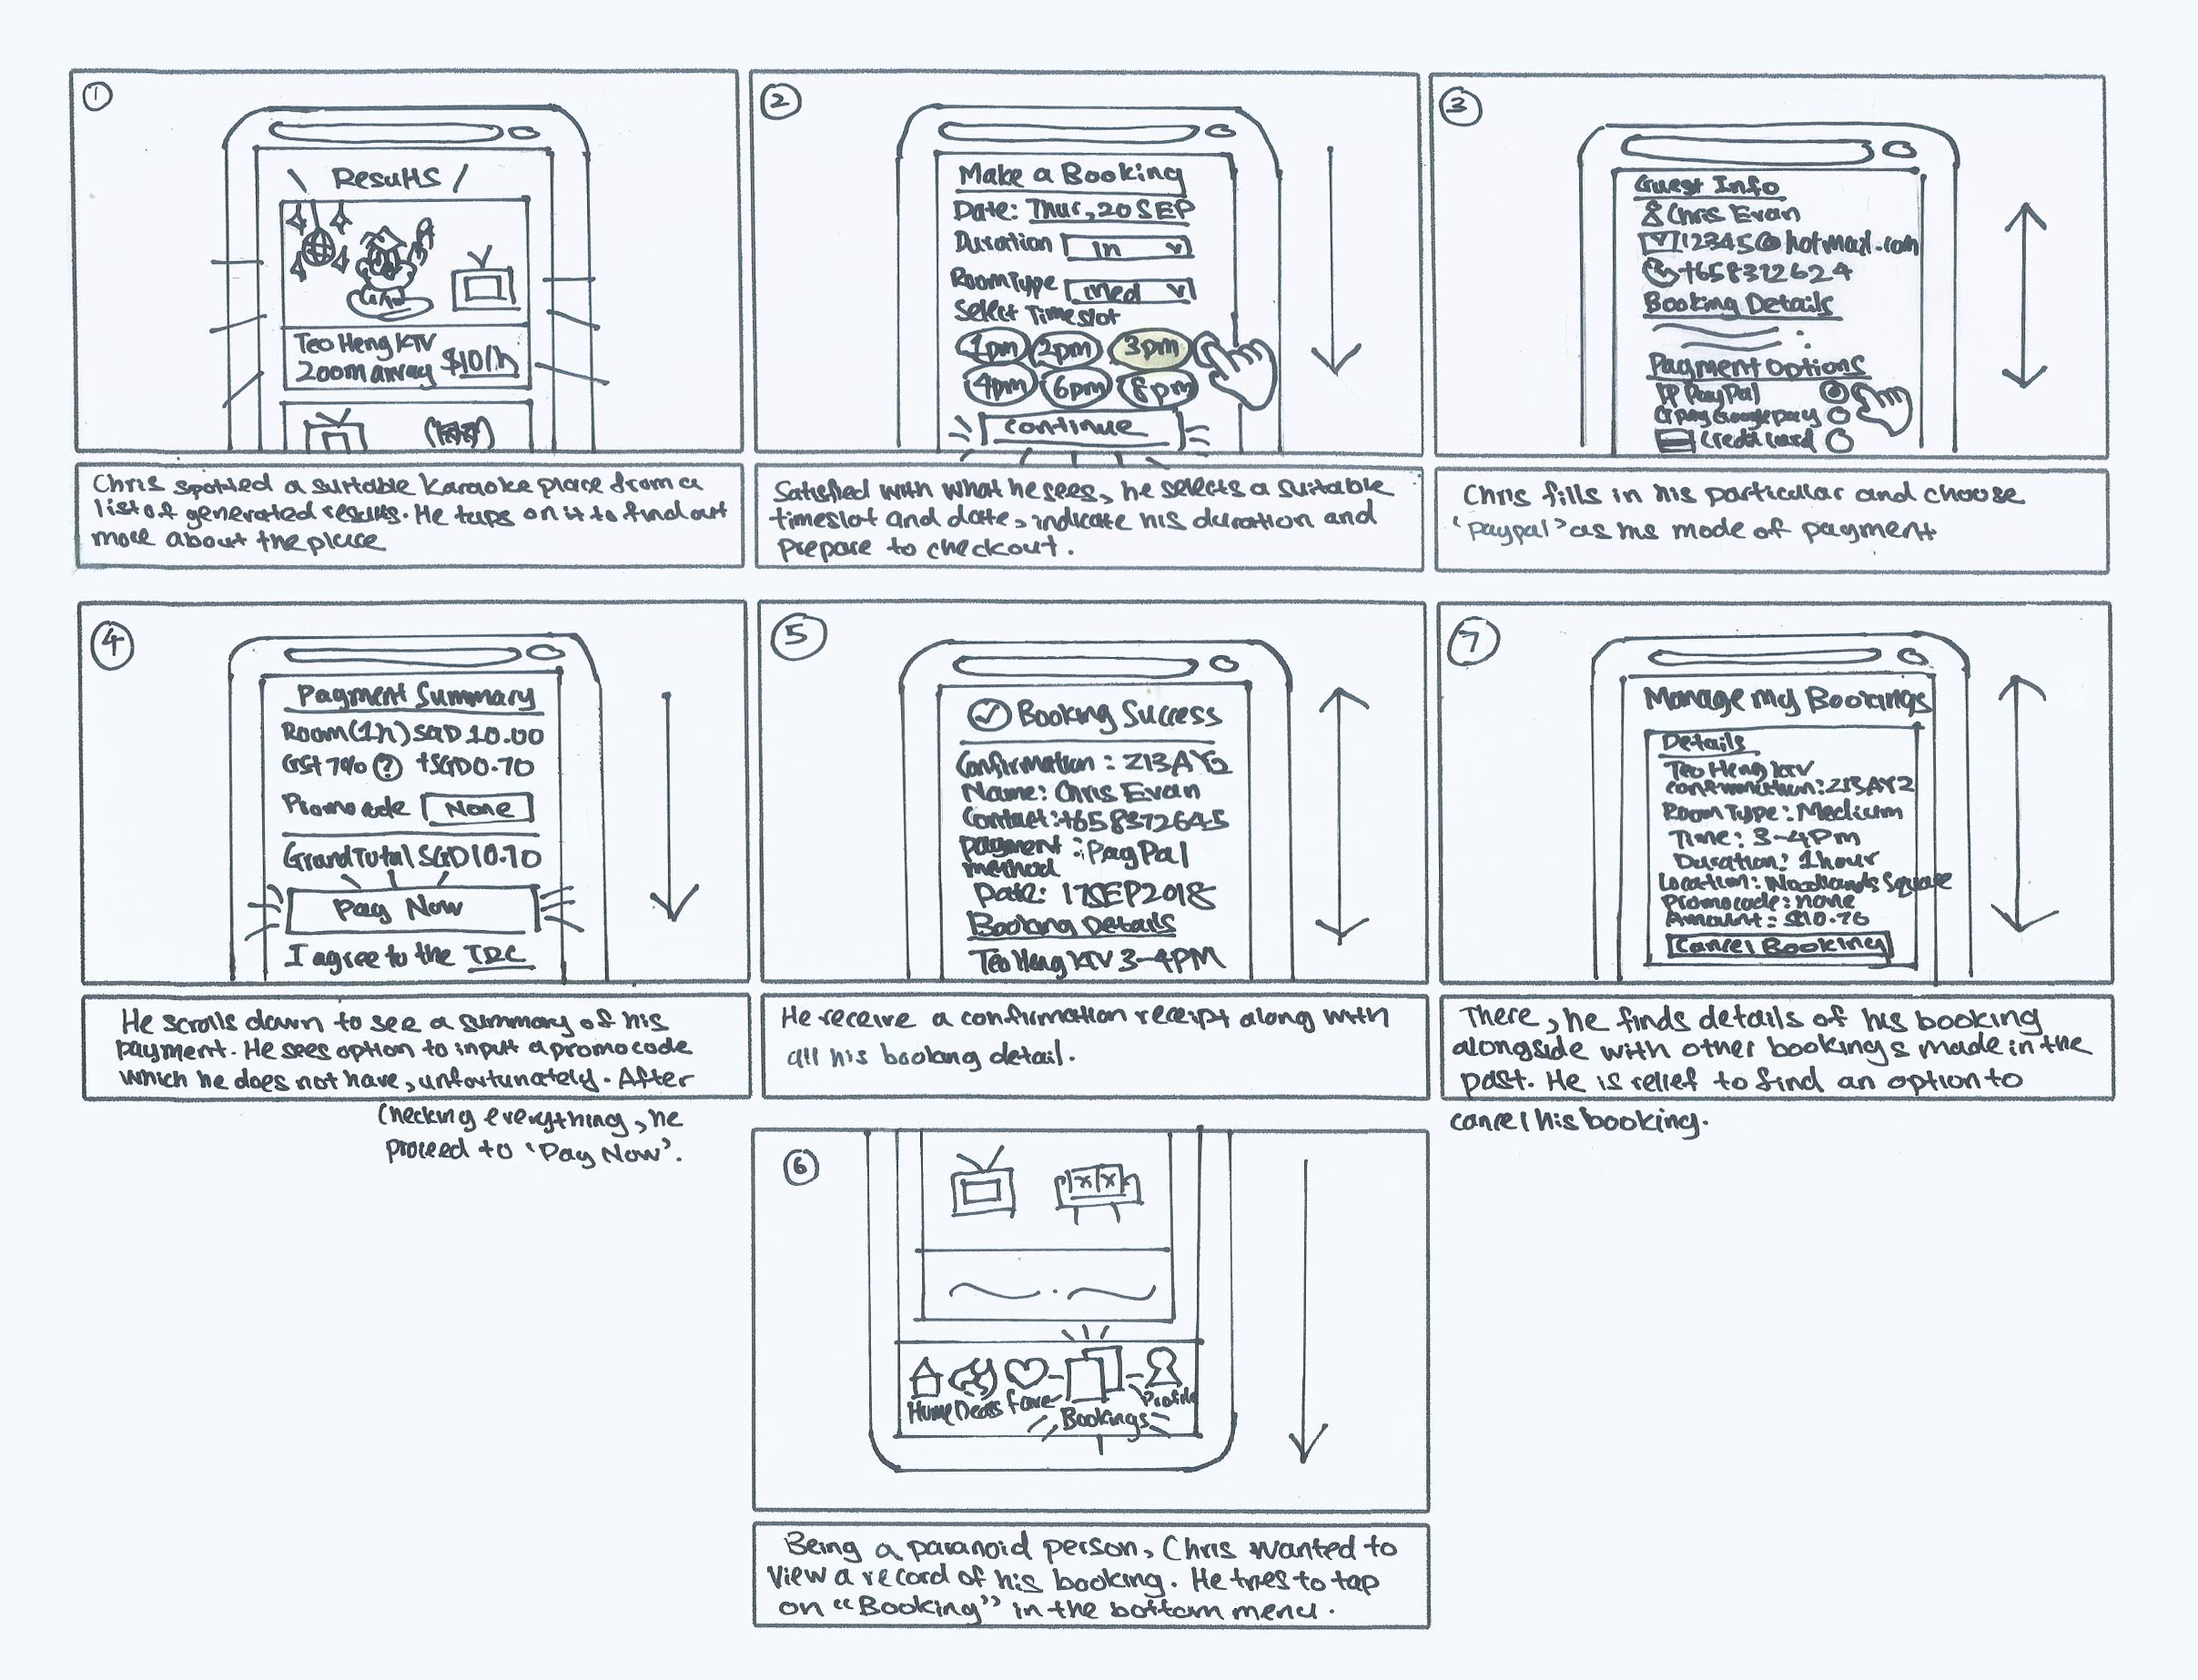 1
Results
Teo Heng KTV
200m away $10/h
Chris spotted a suitable karaoke place from a
list of generated results. He taps on it to find out
more about the place
2
Make a Booking
Date: Thur, 20 SEP
Duration 1h
Room Type Med
Select Timeslot
1pm 2pm 3pm
4pm 6pm 8pm
Continue
Satisfied with what he sees, he selects a suitable
timeslot and date, indicate his duration and
prepare to checkout.
3
Guest Info
Chris Evan
12345@hotmail.com
+658312624
Booking Details
Payment Options
PayPal
G pay Google pay
Credit card
Chris fills in his particular and choose
'Paypal' as his mode of payment
4
Payment Summary
Room (1h) SGD 10.00
GST 7% ? +SGD0.70
Promo code None
Grand Total SGD10.70
Pay Now
I agree to the T&C
He scrolls down to see a summary of his
payment. He sees option to input a promo code
which he does not have, unfortunately. After
checking everything, he
proceed to 'Pay Now'.
5
Booking Success
Confirmation: Z13AY2
Name: Chris Evan
Contact: +658372645
payment : PayPal
method
Date: 17SEP2018
Booking Details
Teo Heng KTV 3-4PM
He receive a confirmation receipt along with
all his booking detail.
7
Manage my Bookings
Details
Teo Heng KTV
confirmation: Z13AY2
Room Type: Medium
Time: 3-4pm
Duration: 1hour
Location: Woodlands Square
Promocode: none
Amount: $10.70
Cancel Booking
There, he finds details of his booking
alongside with other bookings made in the
past. He is relief to find an option to
cancel his booking.
6
Home Deals Fave Bookings Profile
Being a paranoid person, Chris wanted to
view a record of his booking. He tries to tap
on "Booking" in the bottom menu.